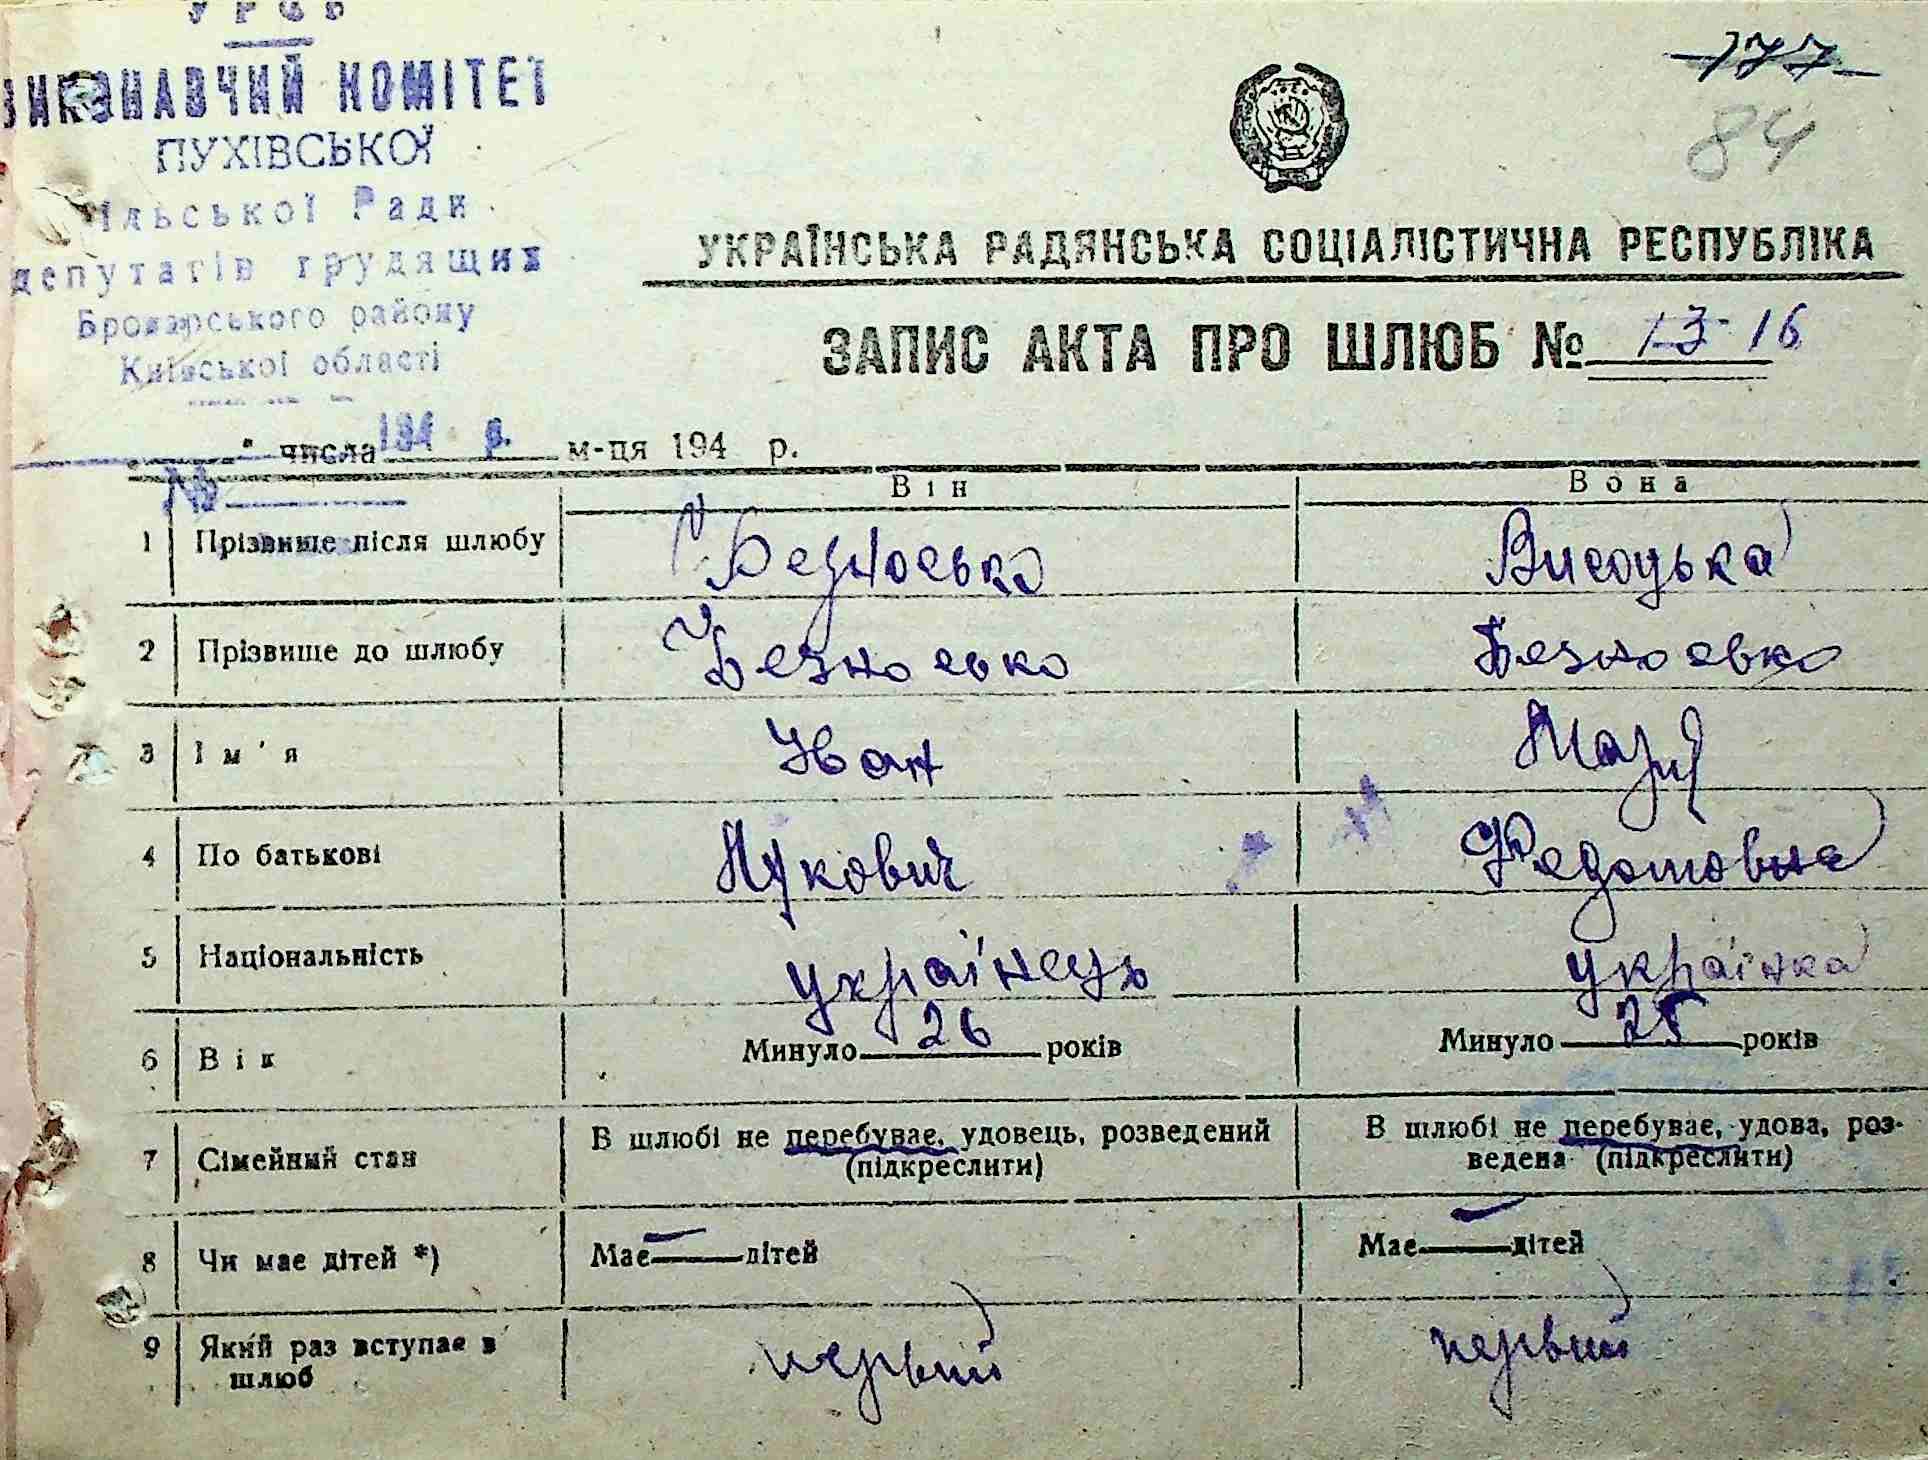 УРСР
ВИКОНАВЧИЙ КОМІТЕТ
ПУХІВСЬКОЇ
сільської Ради
депутатів трудящих
Броварського району
Київської області
194 р.
№
177
84
УКРАЇНСЬКА РАДЯНСЬКА СОЦІАЛІСТИЧНА РЕСПУБЛІКА
ЗАПИС АКТА ПРО ШЛЮБ № 13 16
" числа м-ця 194 р.
Він Вона
1 Прізвище після шлюбу Безносько Висоцька
2 Прізвище до шлюбу Безносько Безносько
3 Ім'я Іван Марія
4 По батькові Лукович Федотовна
5 Національність українець українка
6 Вік Минуло 26 років Минуло 25 років
7 Сімейний стан В шлюбі не перебуває, удовець, розведений (підкреслити) В шлюбі не перебуває, удова, роз-
ведена (підкреслити)
8 Чи має дітей *) Має — дітей Має — дітей
9 Який раз вступає в шлюб первий первий